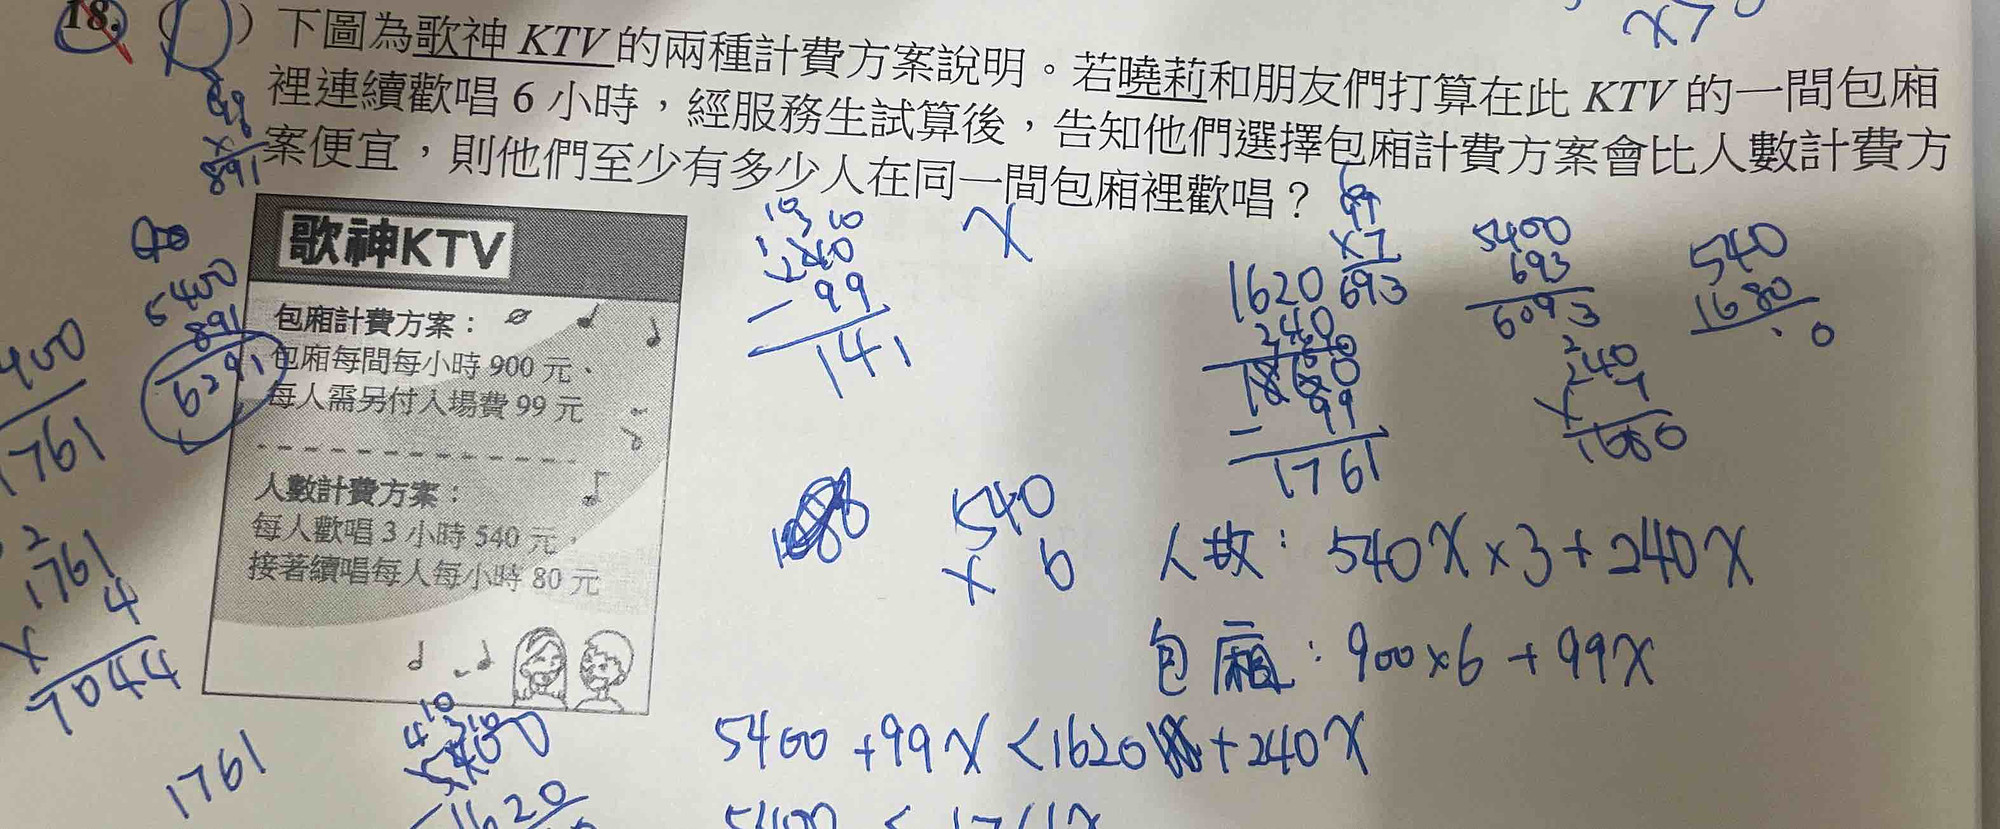 18. ( ) 下圖為歌神 KTV 的兩種計費方案說明。若曉莉和朋友們打算在此 KTV 的一間包廂
裡連續歡唱 6 小時，經服務生試算後，告知他們選擇包廂計費方案會比人數計費方
案便宜，則他們至少有多少人在同一間包廂裡歡唱？
x7
891
歌神KTV
包廂計費方案：
包廂每間每小時 900 元、
每人需另付入場費 99 元
人數計費方案：
每人歡唱 3 小時 540 元，
接著續唱每人每小時 80 元
5400
891
6291
400
1761
1761
x 4
7044
1761
240
- 99
141
x
99
x7
693
1620
240
1860
- 99
1761
5400
693
6093
540
1680
0
240
x 7
1680
540
x 6
人故：540x×3+240x
包廂：900×6+99x
5400+99x<1620+240x
5400
1620
5400 < 1761x